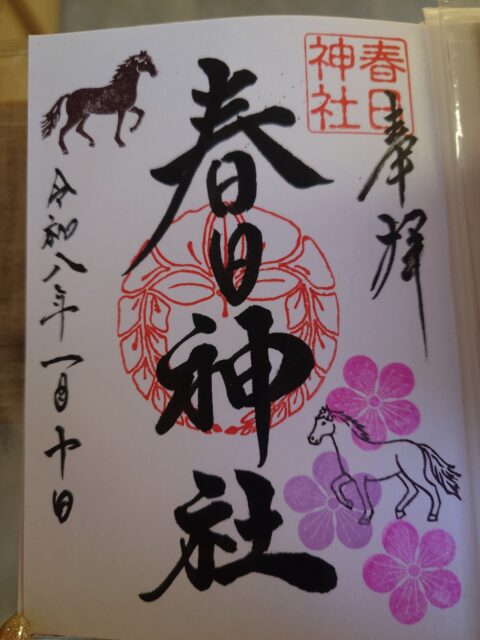 奉拝
春日神社
春日神社
令和八年一月十日